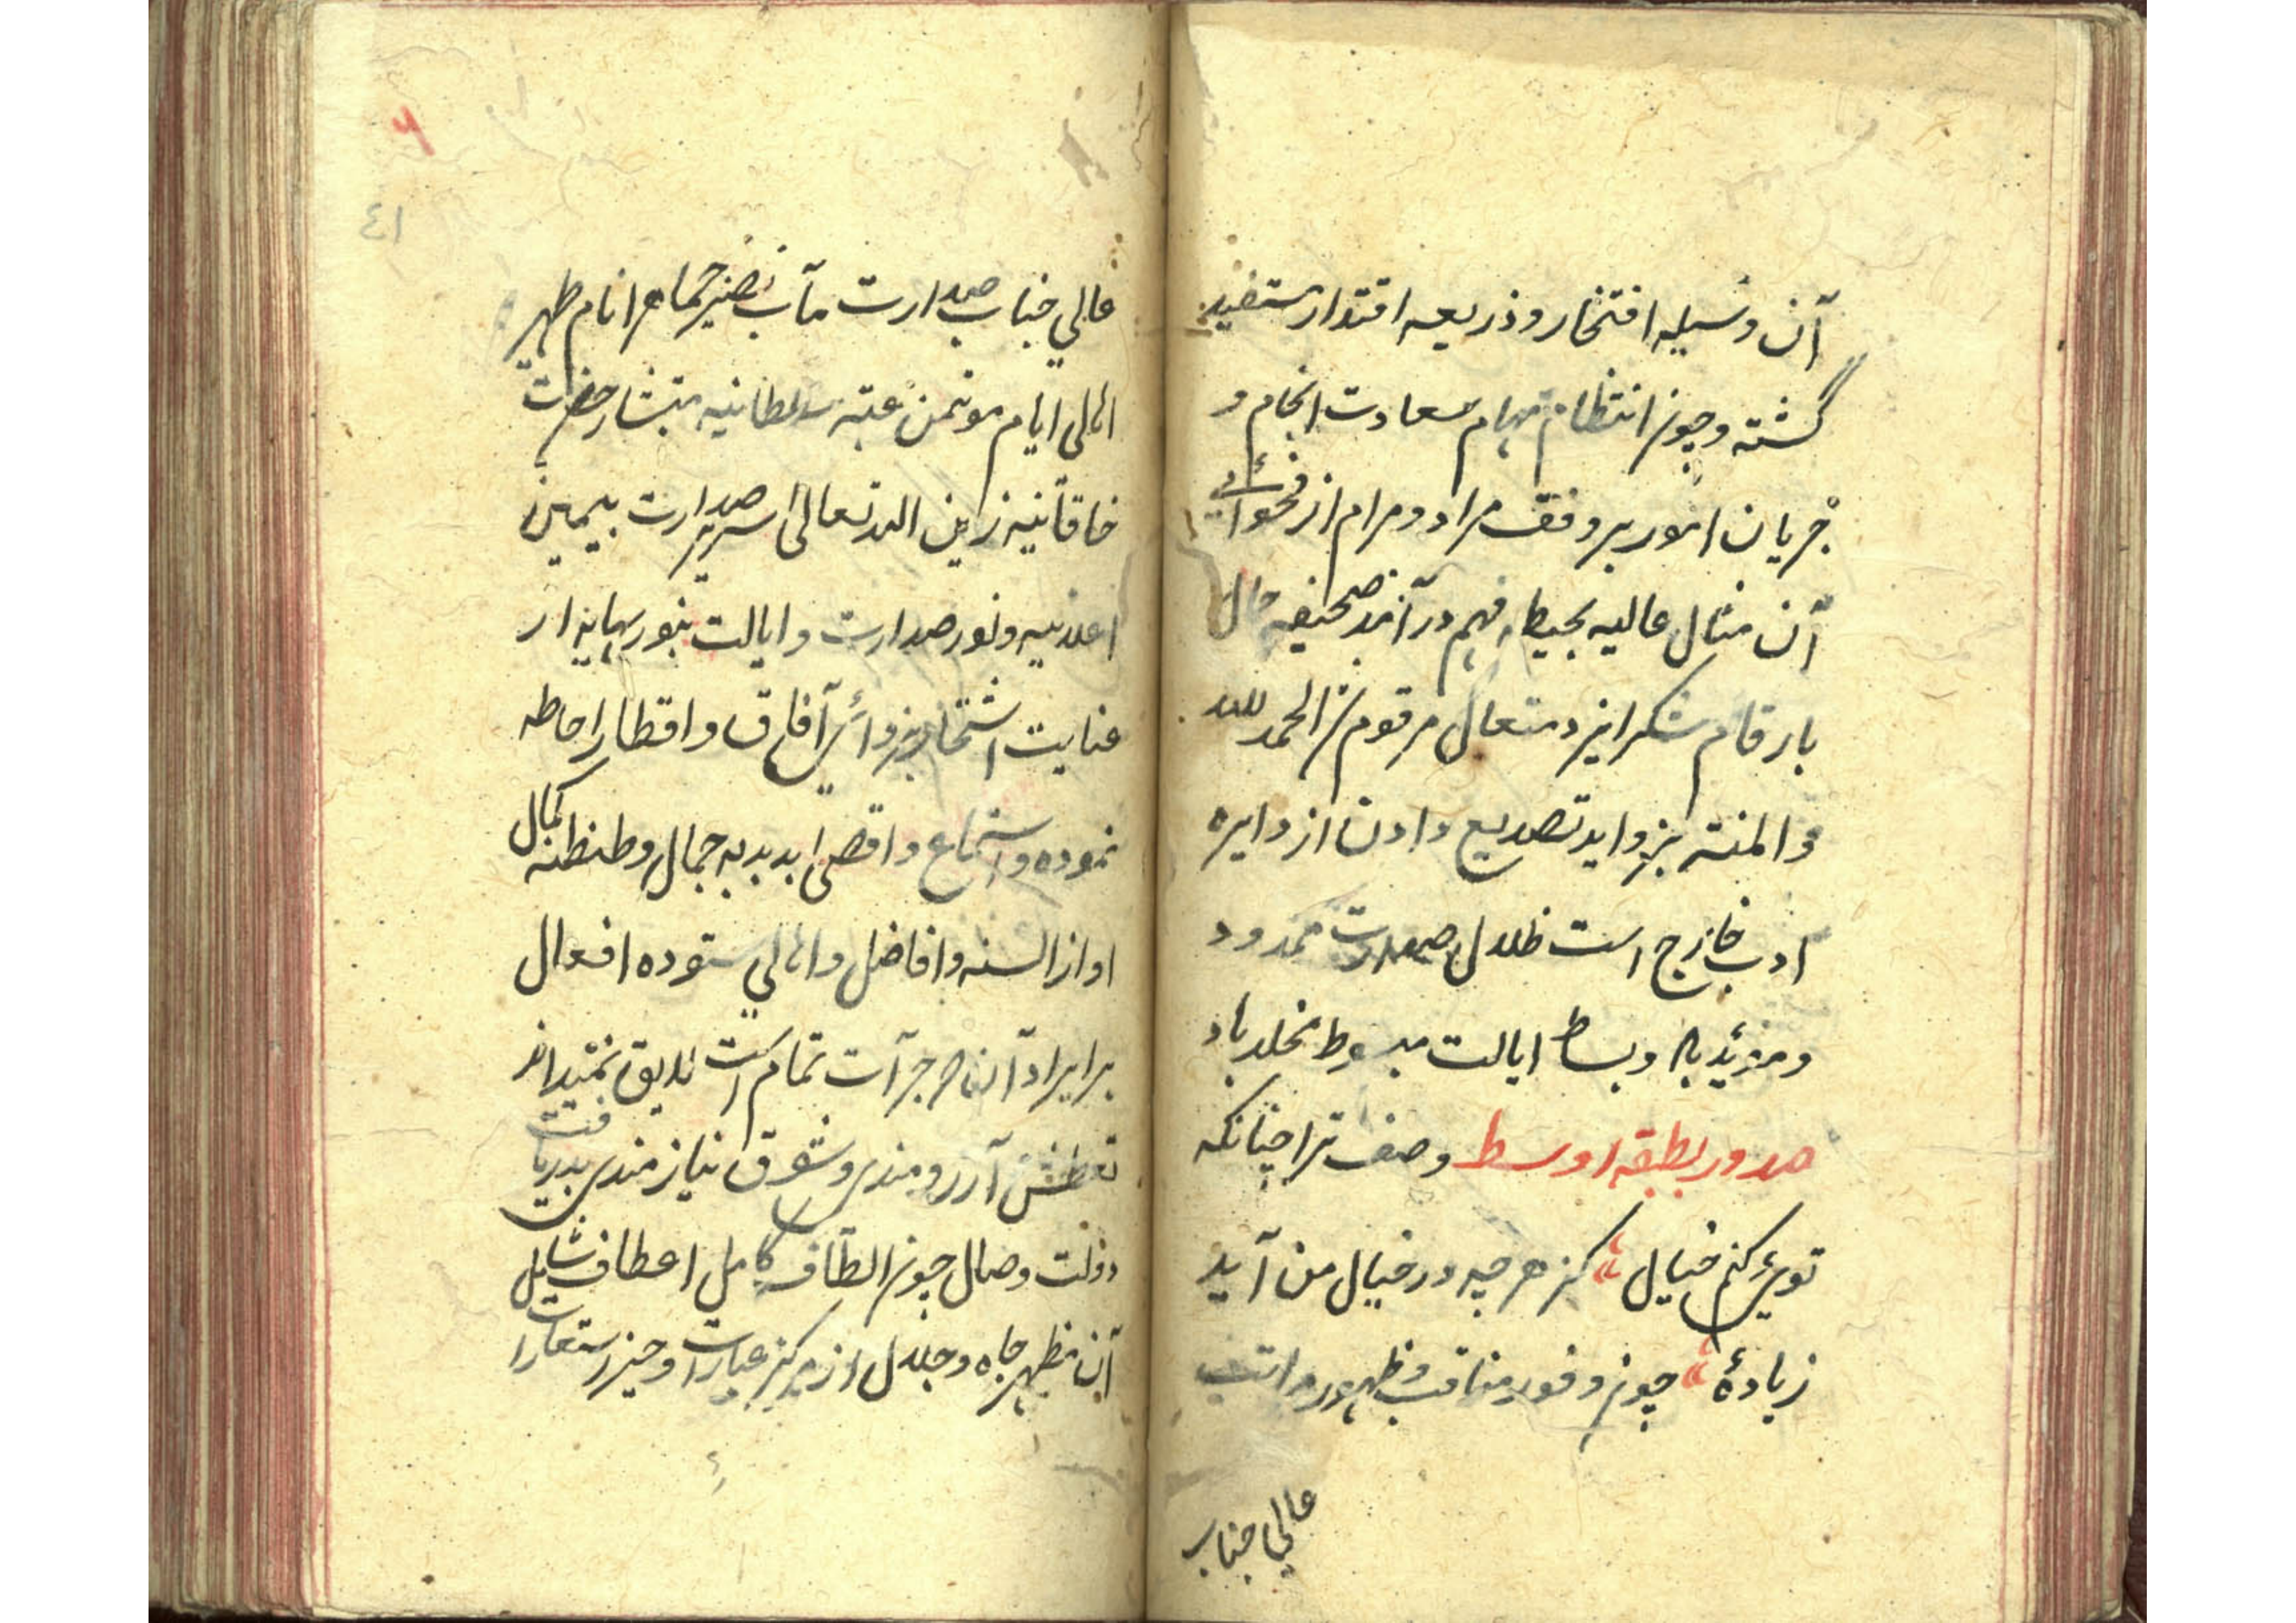 آن وسیله افتخار و ذریعه اقتدار مستفید
گشته و چون انتظام مهام سعادت انجام و
جریان امور بر وفق مراد و مرام از فحوائی
آن مثال عالیه بحیطه فهم در آمد صحیفه حال
بارقام شکر ایزد متعال مرقوم شد الحمد لله
و المنته بزواید تصدیع دادن از دایره
ادب خارج است ظلال صدارت ممدود
و مؤید باد و بساط ایالت مبسوط مخلد باد
صدور بطبقه اوسط وصف ترا چنانکه
توئی کنم خیال کز هر چه در خیال من آید
زیادهٔ چون وفور مناقب و ظهور مراتب
عالي جناب
٤١
عالي جناب صدارت مآب نصیر جماهر انام ظهیر
اهالی ایام موتمن عتبه سلطانیه مستشار حضرت
خاقانیه زین الله تعالی سریر صدارت بیمین
اعلانیه و نور صدارت و ایالت بنور بهایه از
عنایت اشتهار در دوائر آفاق و اقطار احاطه
نموده و استماع و اقصی ابدبدبه جمال و طنطنه کمال
او از السنه و افاضل و اهالي ستوده افعال
بر ایراد آن جرآت تمام است لایق نمیداند
تعطش آرزومندی و شوق نیازمندی بدریافت
دولت وصال چون الطاف کامل اعطاف شامل
آن مظهر جاه و جلال از مرکز عبارات و حیز استعارات